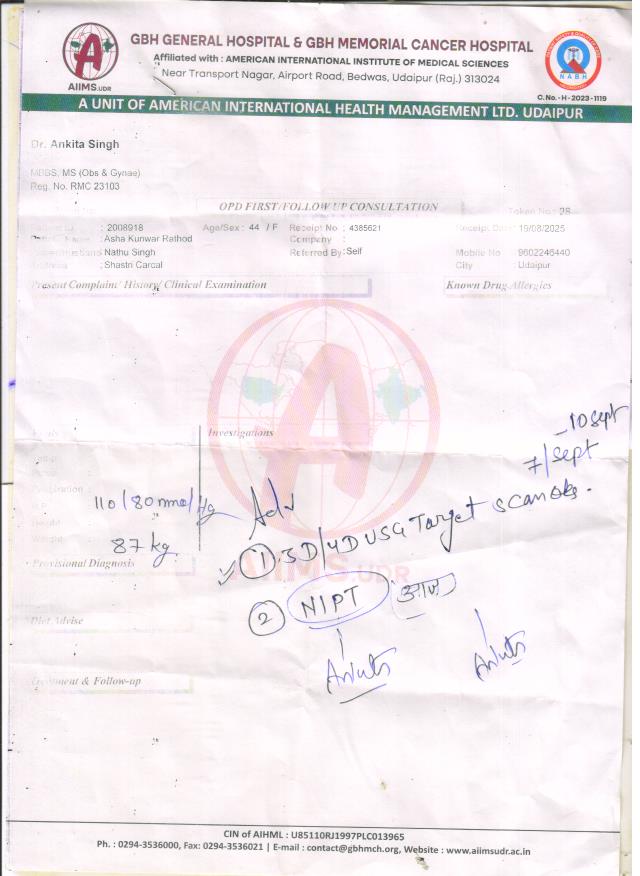 GBH GENERAL HOSPITAL & GBH MEMORIAL CANCER HOSPITAL
Affiliated with : AMERICAN INTERNATIONAL INSTITUTE OF MEDICAL SCIENCES
Near Transport Nagar, Airport Road, Bedwas, Udaipur (Raj.) 313024
AIIMS.UDR
NABH
C.No.-H-2023-1119
A UNIT OF AMERICAN INTERNATIONAL HEALTH MANAGEMENT LTD. UDAIPUR
Dr. Ankita Singh
MBBS, MS (Obs & Gynae)
Reg. No. RMC 23103
OPD FIRST/FOLLOW UP CONSULTATION Token No : 28
: 2008918 Age/Sex : 44 / F Receipt No : 4385621 Receipt Date : 19/08/2025
Name : Asha Kunwar Rathod Company :
Nathu Singh Referred By : Self Mobile No : 9602246440
: Shastri Carcal City : Udaipur
Present Complaint/ History/ Clinical Examination Known Drug Allergies
10 Sept
7/Sept
Investigations
110/80 mmol/Hg Adv
87 kg.
① 3D/4D USG Target scan
Provisional Diagnosis
AIIMS.UDR
② NIPT आज
Diet Advise
Treatment & Follow-up
CIN of AIHML : U85110RJ1997PLC013965
Ph. : 0294-3536000, Fax: 0294-3536021 | E-mail : contact@gbhmch.org, Website : www.aiimsudr.ac.in